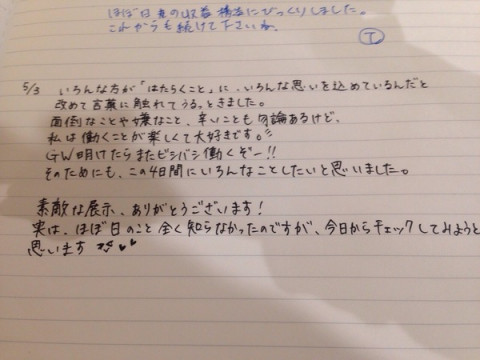 ほぼ日の収益構造にびっくりしました。
これからも続けて下さいね。
T
5/3 いろんな方が「はたらくこと」に、いろんな思いを込めているんだと
改めて言葉に触れてうるっときました。
面倒なことや嫌なこと、辛いことも勿論あるけど、
私は働くことが楽しくて大好きです。
GW明けたらまたビシバシ働くぞー!!
そのためにも、この4日間にいろんなことしたいと思いました。
素敵な展示、ありがとうございます!
実は、ほぼ日のこと全く知らなかったのですが、今日からチェックしてみようと
思います